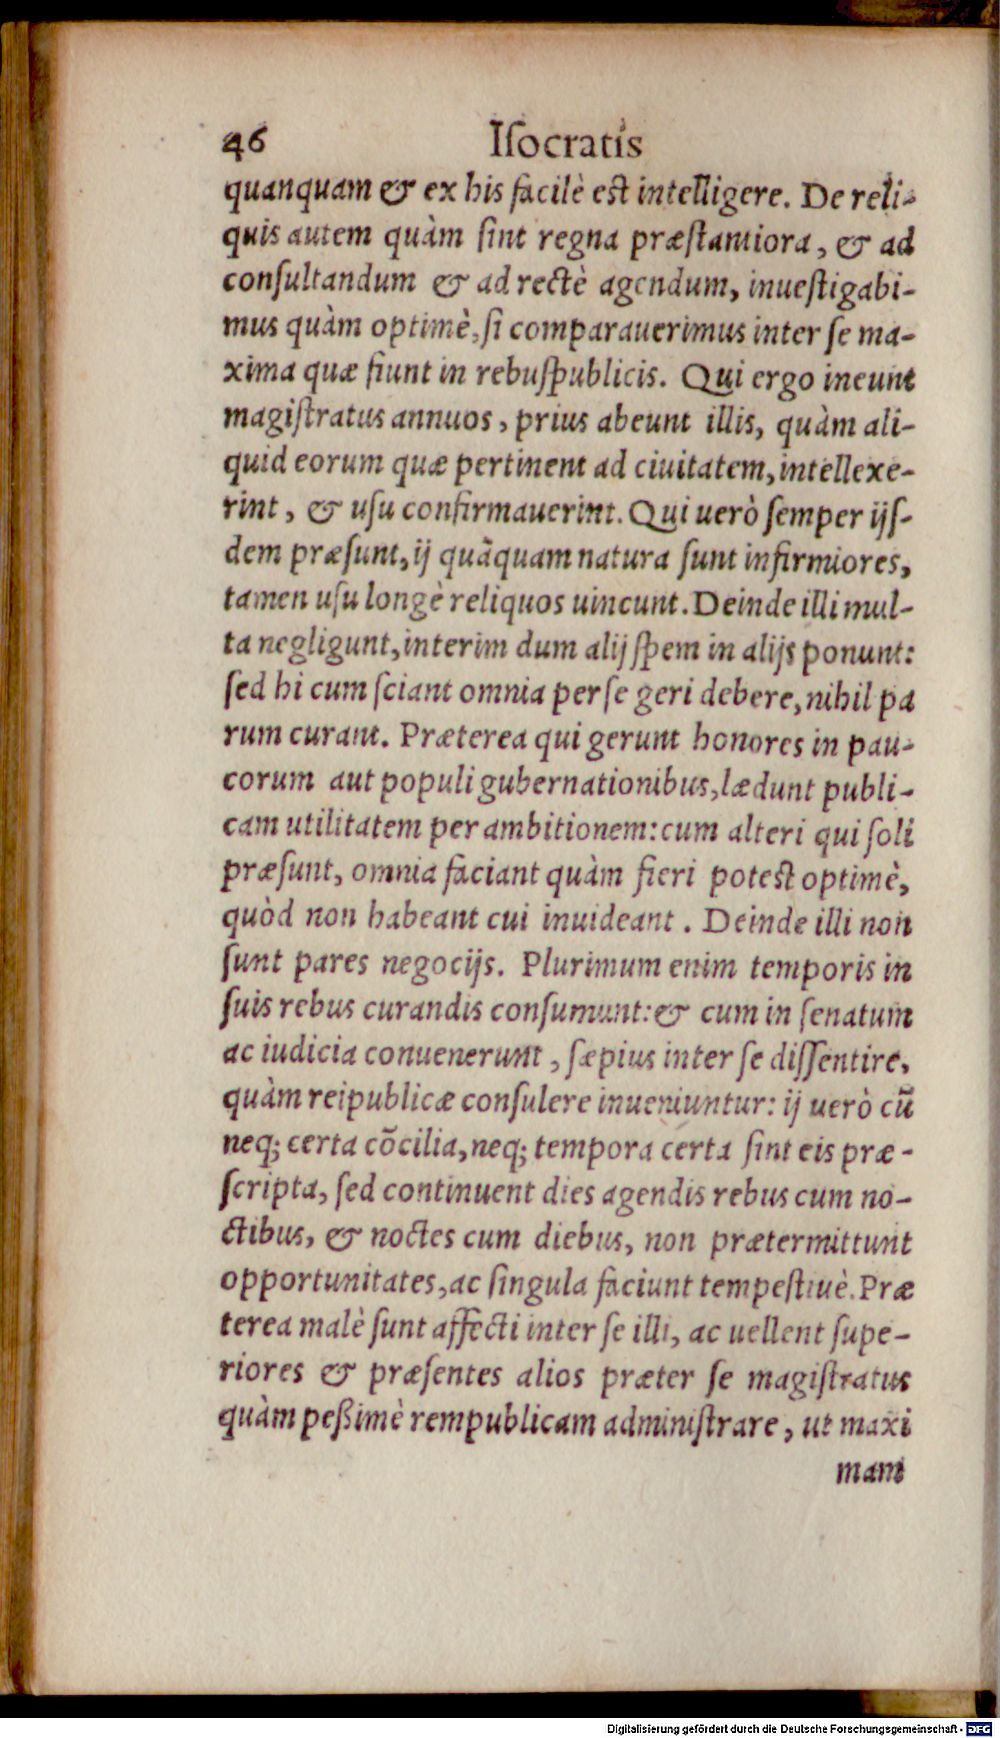 46 Iſocratis
quanquam & ex his facilè est intelligere. De reli-
quis autem quàm ſint regna præſtantiora, & ad
conſultandum & ad rectè agendum, inueſtigabi-
mus quàm optimè, ſi comparauerimus inter ſe ma-
xima quæ fiunt in rebuſpublicis. Qui ergo ineunt
magiſtratus annuos, prius abeunt illis, quàm ali-
quid eorum quæ pertinent ad ciuitatem, intellexe-
rint, & uſu confirmauerint. Qui uerò ſemper ijſ-
dem præſunt, ij quãquam natura ſunt infirmiores,
tamen uſu longè reliquos uincunt. Deinde illi mul-
ta negligunt, interim dum alij ſpem in alijs ponunt:
ſed hi cum ſciant omnia per ſe geri debere, nihil pa
rum curant. Præterea qui gerunt honores in pau-
corum aut populi gubernationibus, lædunt publi-
cam utilitatem per ambitionem: cum alteri qui ſoli
præſunt, omnia faciant quàm fieri potest optimè,
quòd non habeant cui inuideant. Deinde illi non
ſunt pares negocijs. Plurimum enim temporis in
ſuis rebus curandis conſumunt: & cum in ſenatum
ac iudicia conuenerunt, ſæpius inter ſe diſſentire,
quàm reipublicæ conſulere inueniuntur: ij uerò cũ
neq; certa cõcilia, neq; tempora certa ſint eis præ-
ſcripta, ſed continuent dies agendis rebus cum no-
ctibus, & noctes cum diebus, non prætermittunt
opportunitates, ac ſingula faciunt tempeſtiuè. Præ
terea malè ſunt affecti inter ſe illi, ac uellent ſupe-
riores & præſentes alios præter ſe magiſtratus
quàm peßimè rempublicam adminiſtrare, ut maxi
mam
Digitalisierung gefördert durch die Deutsche Forschungsgemeinschaft - DFG